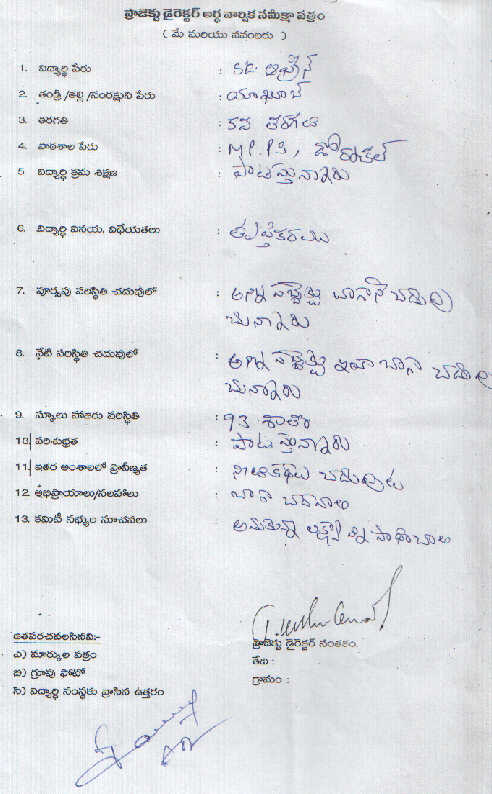 ప్రాజెక్టు డైరెక్టర్ అర్ధ వార్షిక సమీక్షా పత్రం
( మే మరియు నవంబరు )
1. విద్యార్థి పేరు : SK.
2. తండ్రి/తల్లి/సంరక్షుని పేరు : యాఖూబ్
3. తరగతి : 5వ తరగతి
4. పాఠశాల పేరు : M.P.P.S,
5. విద్యార్థి క్రమ శిక్షణ : పాటిస్తున్నారు
6. విద్యార్థి వినయ, విధేయతలు : తృప్తికరము
7. పూర్వపు పరిస్థితి చదువులో : అన్ని సబ్జెక్ట్సు బాగానే చదువు
చున్నారు
8. నేటి పరిస్థితి చదువులో : అన్ని సబ్జెక్ట్సు ఇంకా బాగా చదువు
చున్నారు
9. స్కూలు హాజరు పరిస్థితి : 93 శాతం
10. పరిశుభ్రత : పాటిస్తున్నారు
11. ఇతర అంశాలలో ప్రావీణ్యత : నీతికథలు చదువుట
12. అభిప్రాయాలు/సలహాలు : బాగా చదవాలి
13. కమిటీ సభ్యుల సూచనలు : అనుకున్న లక్ష్యాన్ని సాధించాలి
ప్రాజెక్టు డైరెక్టర్ సంతకం
తేది :
గ్రామం :
జతపరచవలసినవి:-
ఎ) మార్కుల పత్రం
బి) గ్రూపు ఫోటో
సి) విద్యార్థి సంస్థకు వ్రాసిన ఉత్తరం